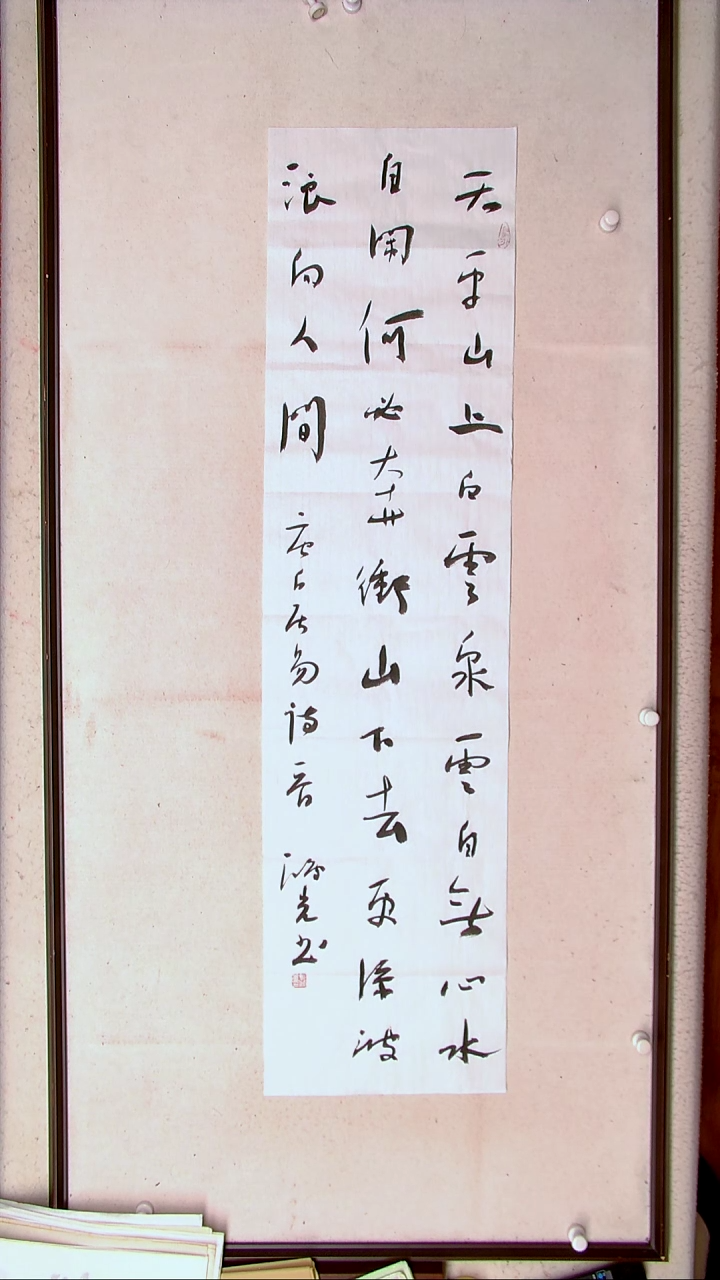 天平山上白雲泉雲自無心水
自閑何必奔衝山下去更添波
浪向人間 唐白居易詩一首 光书